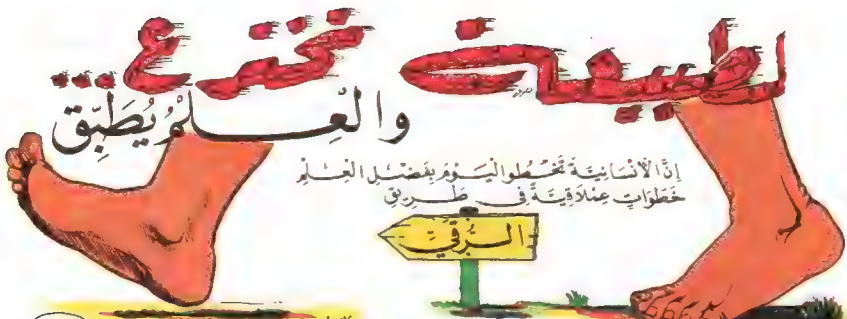 الطبيعة تخترع...
والعِلمُ يُطَبِّق
إنَّ الأنْسَانِيَّة تَخْطُو اليَوْمَ بِفَضْلِ العِلْمِ
خَطَوَاتٍ عِمْلاَقِيَّةً فِى طَرِيقِ
الرُّقِيّ